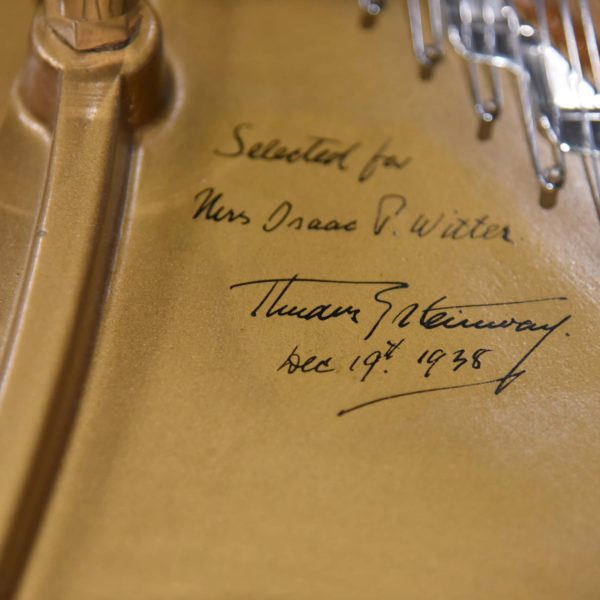 Selected for
Mrs Isaac P. Witter.
Theodore E Steinway.
Dec 19th. 1938